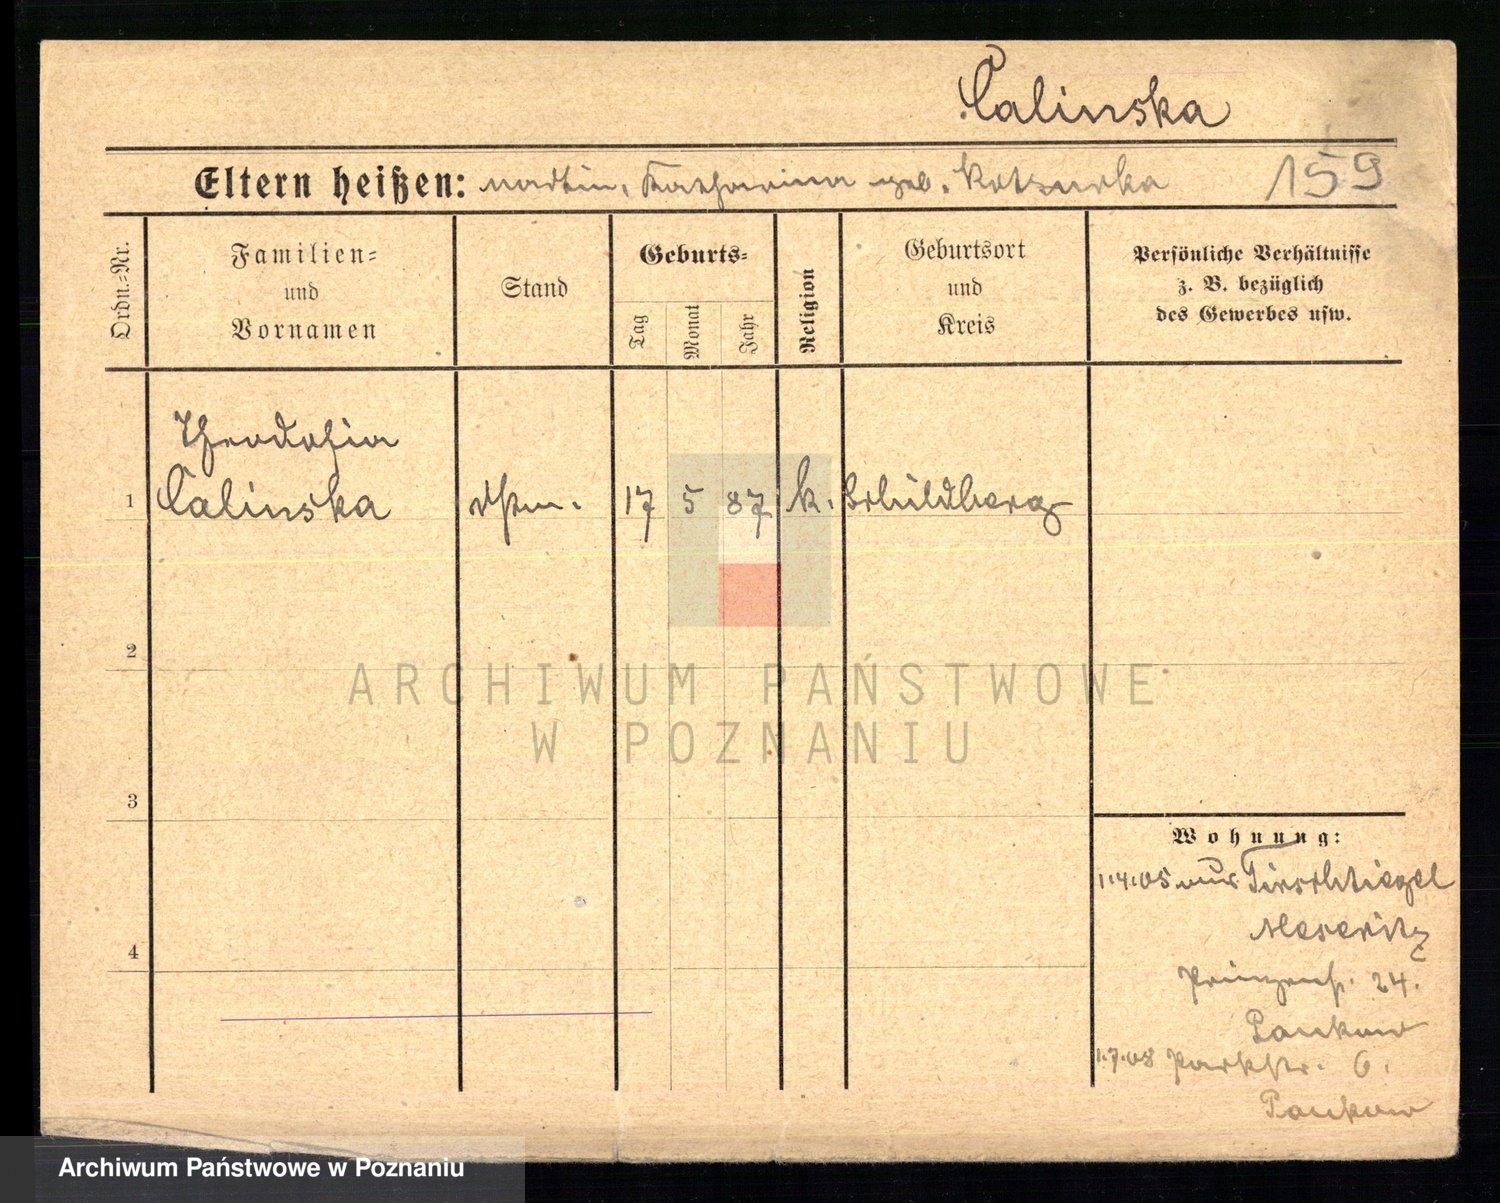 Calinska
Eltern heißen: Martin, Katharina geb. Kotzurka
159
Ordn.-Nr.
Familien-
und
Vornamen
Stand
Geburts-
Tag
Monat
Jahr
Religion
Geburtsort
und
Kreis
Persönliche Verhältnisse
z. B. bezüglich
des Gewerbes usw.
Theodosia
1 Calinska 17 5 87 k. Schildberg
2
3
4
Wohnung:
1.4.05 aus Tirschtiegel
Meseritz
Prinzenst. 24.
Pankow
1.7.08 Parkstr. 6.
Pankow
ARCHIWUM PAŃSTWOWE
W POZNANIU
Archiwum Państwowe w Poznaniu